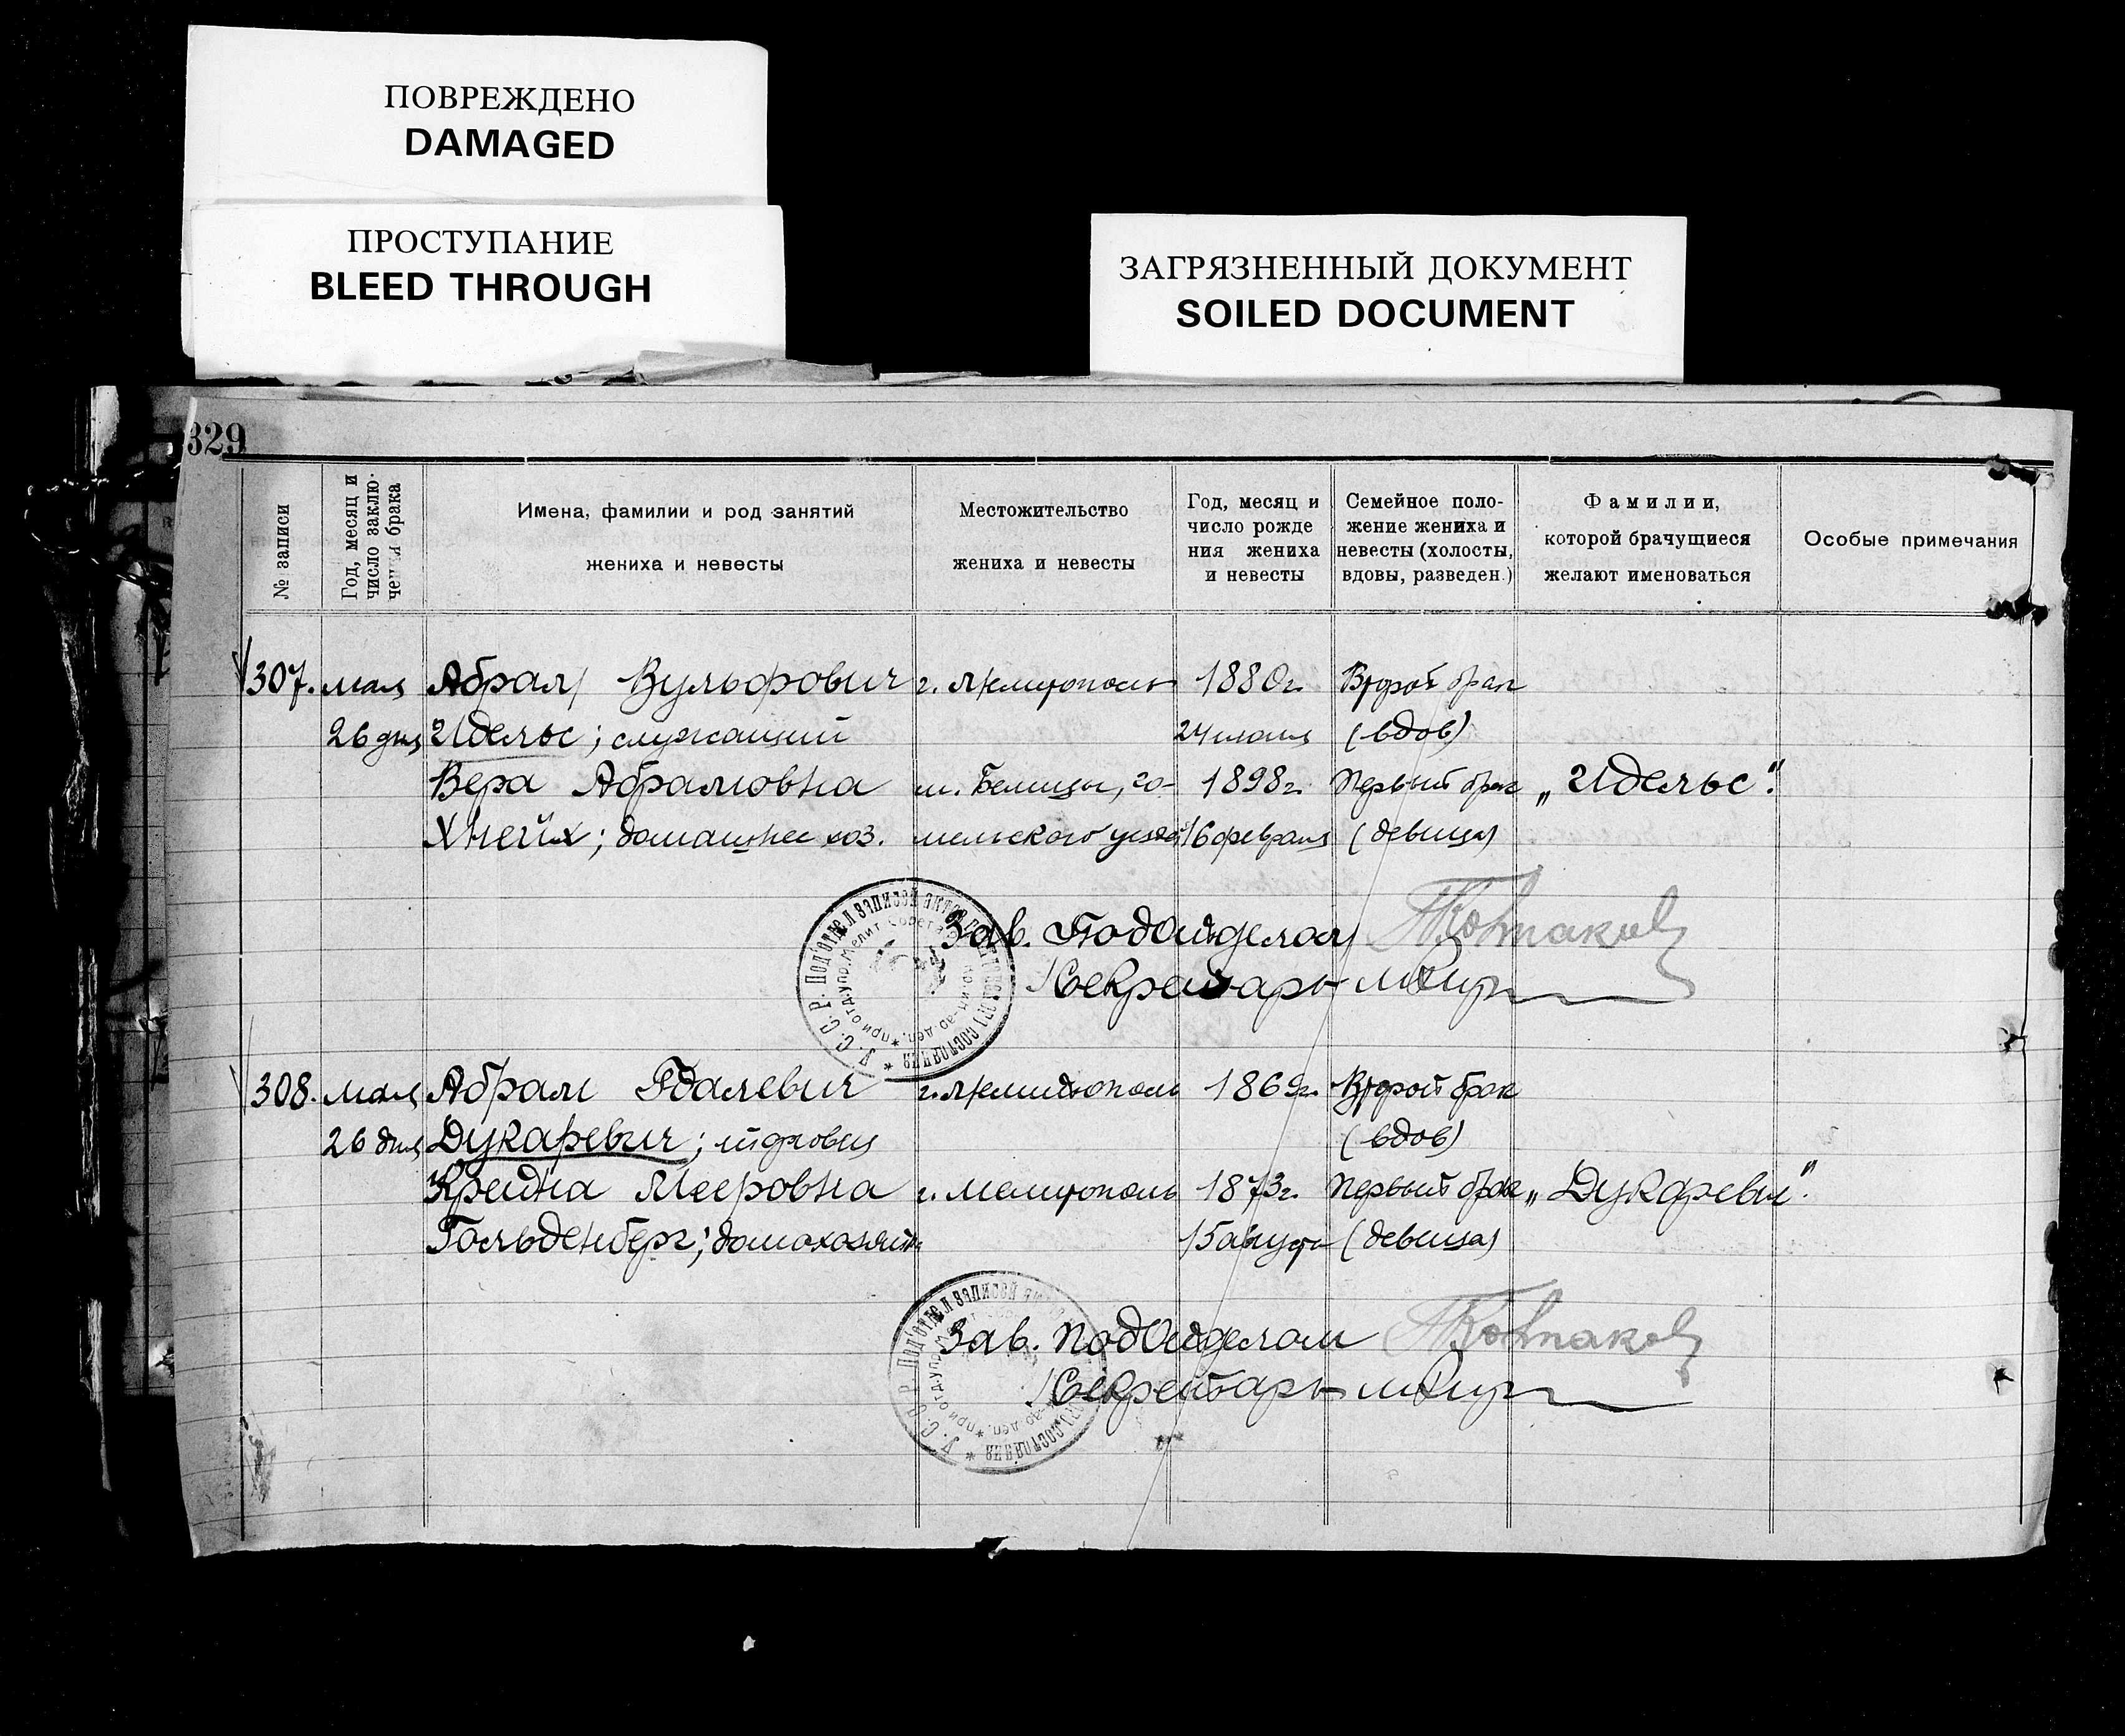 ПОВРЕЖДЕНО
DAMAGED
ПРОСТУПАНИЕ
BLEED THROUGH
ЗАГРЯЗНЕННЫЙ ДОКУМЕНТ
SOILED DOCUMENT
329
№ записи
Год, месяц и
число заклю-
чения брака
Имена, фамилии и род занятий
жениха и невесты
Местожительство
жениха и невесты
Год, месяц и
число рожде
ния жениха
и невесты
Семейное поло-
жение жениха и
невесты (холосты,
вдовы, разведен.)
Фамилии,
которой брачущиеся
желают именоваться
Особые примечания
307. мая Абрам Вульфович г. Мелитополь 1880г. Второй брак
26 дня Идельс; служащий 24 (вдов)
Вера Абрамовна м. Белицы, го- 1898г. Первый брак „Идельс".
Хнейх; домашнее хоз. мельского уезда 16 февраля (девица)
Зав. Подотделом
Секретарь
308. мая Абрам г. Мелитополь 1869г. Второй брак
26 дня Дукаревич; (вдов)
Крейна Мееровна г. Мелитополь 1873г. Первый брак „Дукаревич".
Гольденберг; домохозяйка 15 августа (девица)
Зав. Подотделом
Секретарь